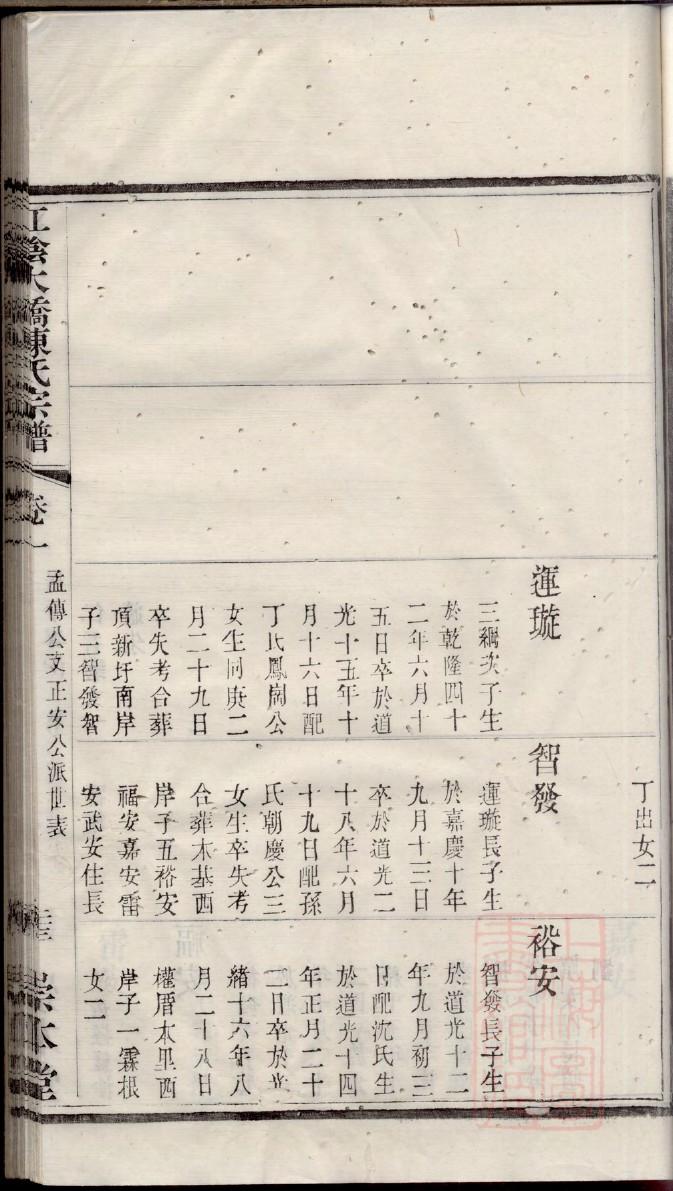 丁出女二
運璇
三綱次子生
於乾隆四十
二年六月十
五日卒於道
光十五年十
月十六日配
丁氏鳳崗公
女生同庚二
月二十九日
卒失考合葬
頂新圩南岸
子三智發智
智發
運璇長子生
於嘉慶十年
九月十三日
卒於道光二
十八年六月
十九日配孫
氏朝慶公三
女生卒失考
合葬木基西
岸子五裕安
福安嘉安雷
安武安住長
裕安
智發長子生
於道光十二
年九月初三
日配沈氏生
於道光十四
年正月二十
二日卒於光
緒十六年八
月二十八日
權厝本里西
岸子一霖根
女二
江陰大橋陳氏宗譜
卷一
孟傳公支正安公派世表
宗本堂